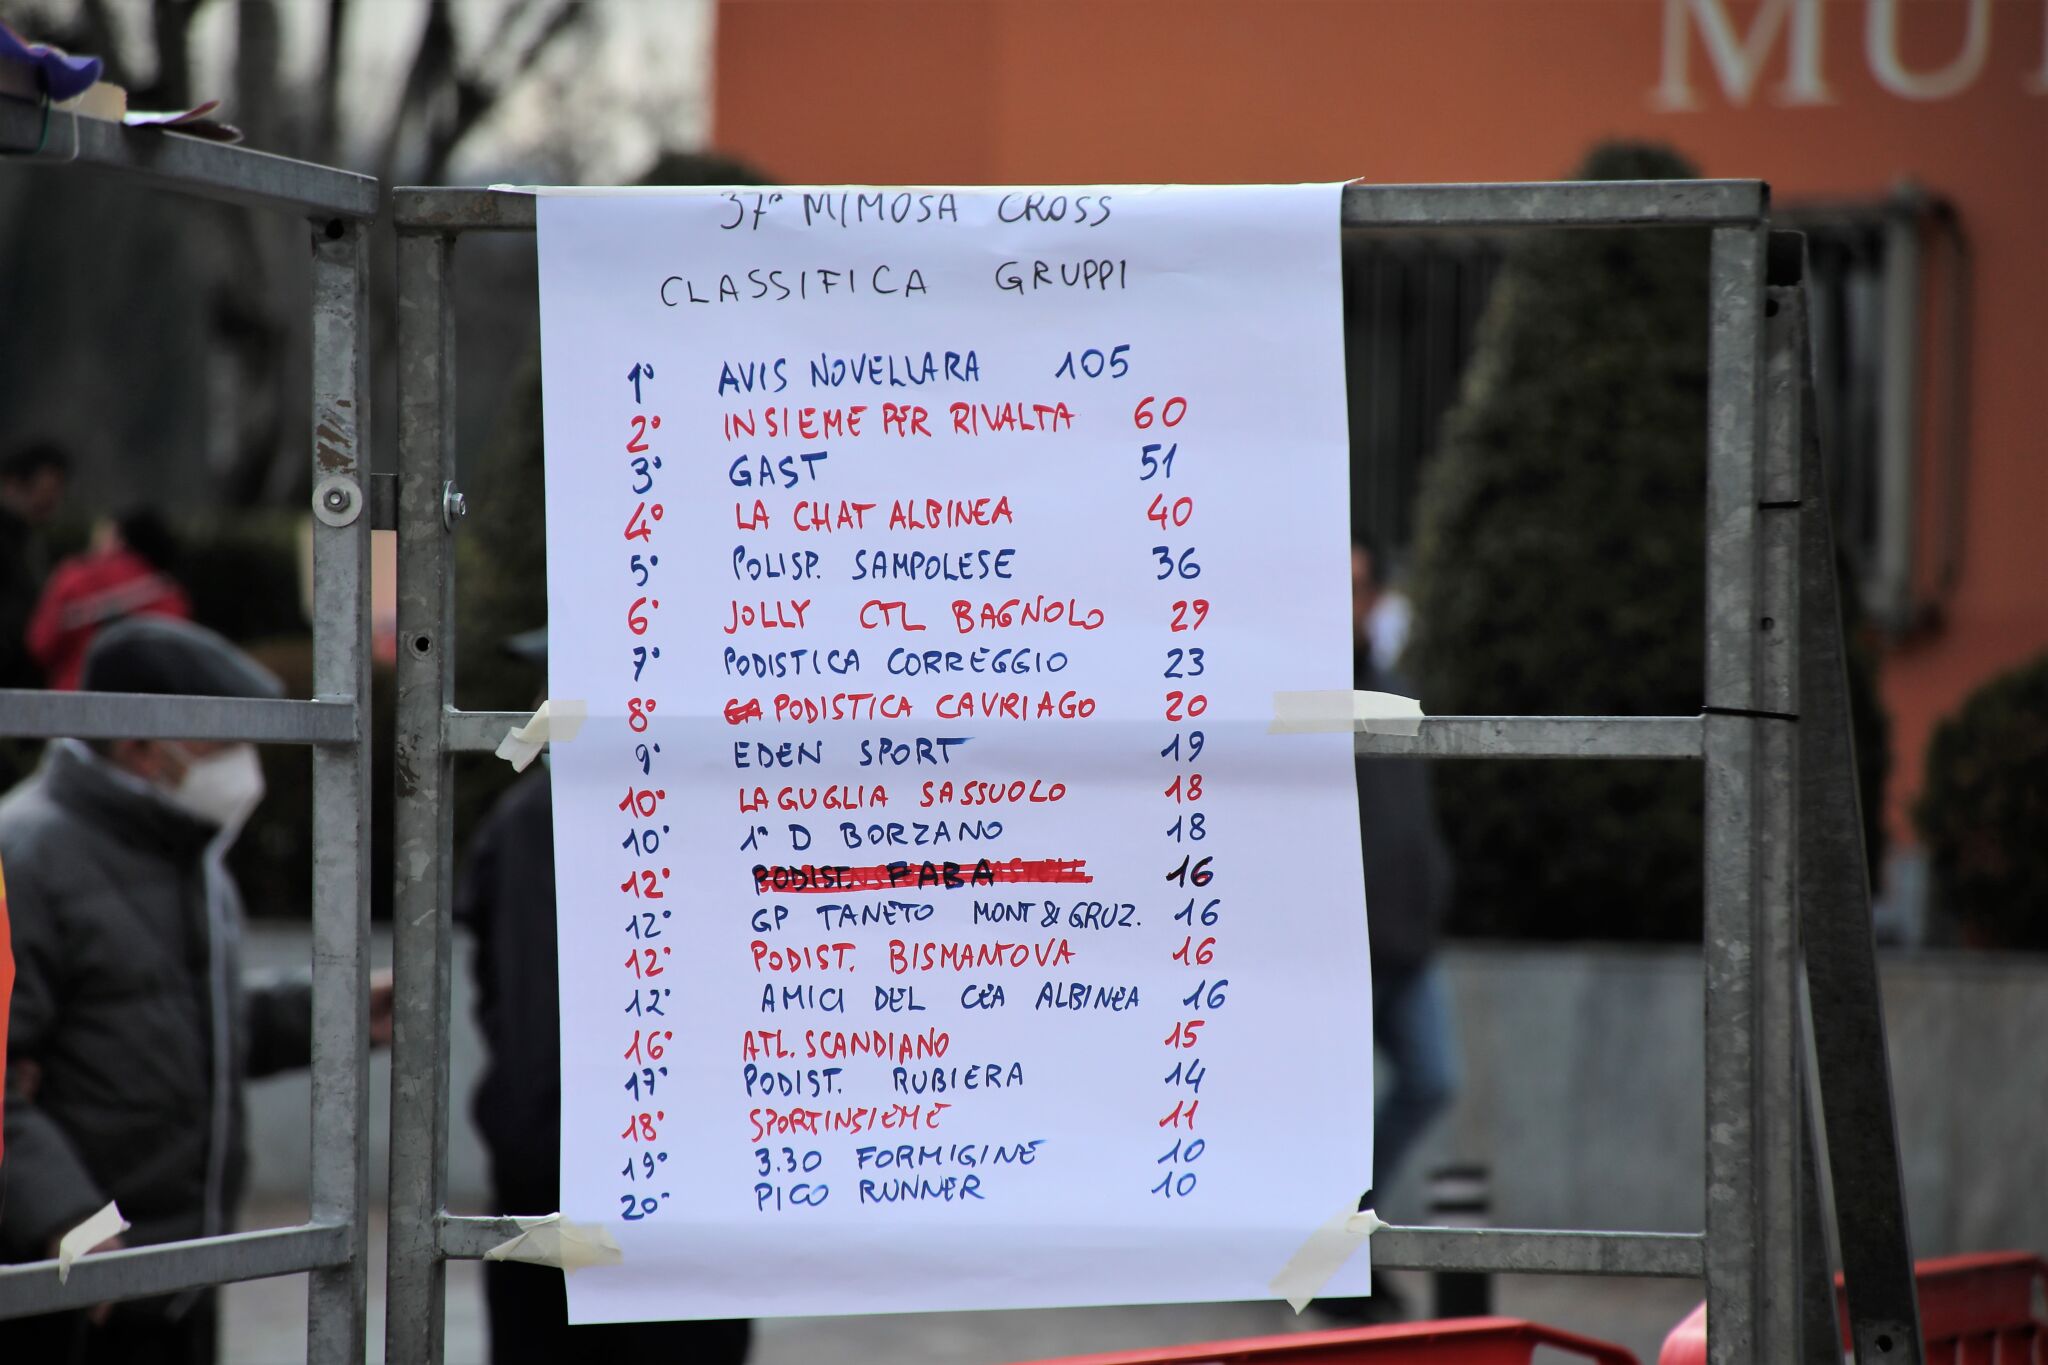 MU
37ª MIMOSA CROSS
CLASSIFICA GRUPPI
1° AVIS NOVELLARA 105
2° INSIEME PER RIVALTA 60
3° GAST 51
4° LA CHAT ALBINEA 40
5° POLISP. SAMPOLESE 36
6° JOLLY CTL BAGNOLO 29
7° PODISTICA CORREGGIO 23
8° PODISTICA CAVRIAGO 20
9° EDEN SPORT 19
10° LA GUGLIA SASSUOLO 18
10° 1ª D BORZANO 18
12° PODIST. FABA 16
12° GP TANETO MONT & GRUZ. 16
12° PODIST. BISMANTOVA 16
12° AMICI DEL CEA ALBINEA 16
16° ATL. SCANDIANO 15
17° PODIST. RUBIERA 14
18° SPORTINSIEME 11
19° 3.30 FORMIGINE 10
20° PICO RUNNER 10